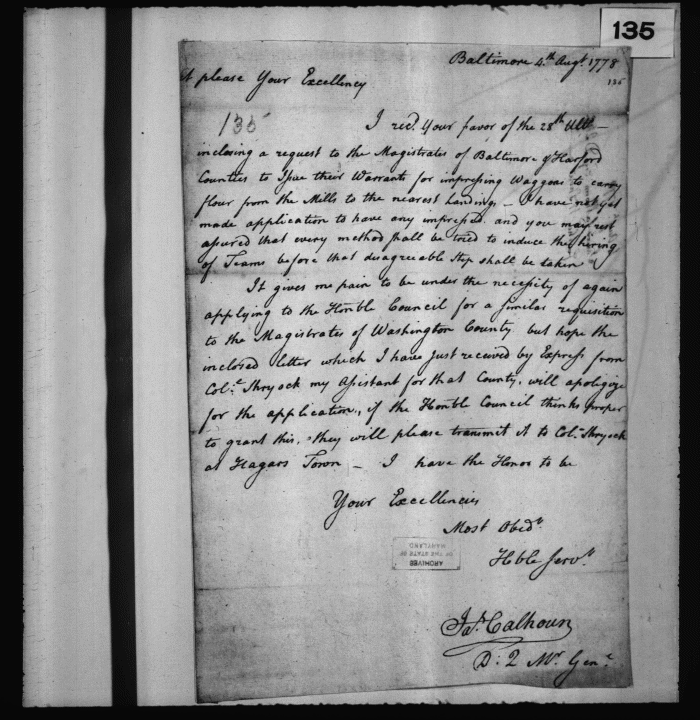 135
Baltimore 4th Augt. 1778
135
It please Your Excellency
135
I recd. Your favor of the 28th Ulto. —
inclosing a request to the Magistrates of Baltimore & Harford
Counties to Issue their Warrants for impressing Waggons to carry
flour from the Mills to the nearest Landing, — I have not yet
made application to have any impressed. and you may rest
assured that every method shall be tried to induce the hiring
of Teams before that disagreeable Step shall be taken
It gives me pain to be under the necessity of again
applying to the Honble Council for a similar requisition
to the Magistrates of Washington County. but hope the
inclosed letter which I have just received by Express from
Col. Shryock my Assistant for that County, will apoligize
for the application, if the Honble Council thinks proper
to grant this, they will please transmit it to Col. Shryock
at Hagars Town — I have the Honor to be
Your Excellencies
Most Obedt.
Hble Servt.
ARCHIVES
OF THE STATE OF
MARYLAND
Jas. Calhoun
D: Q Mr. Genl.